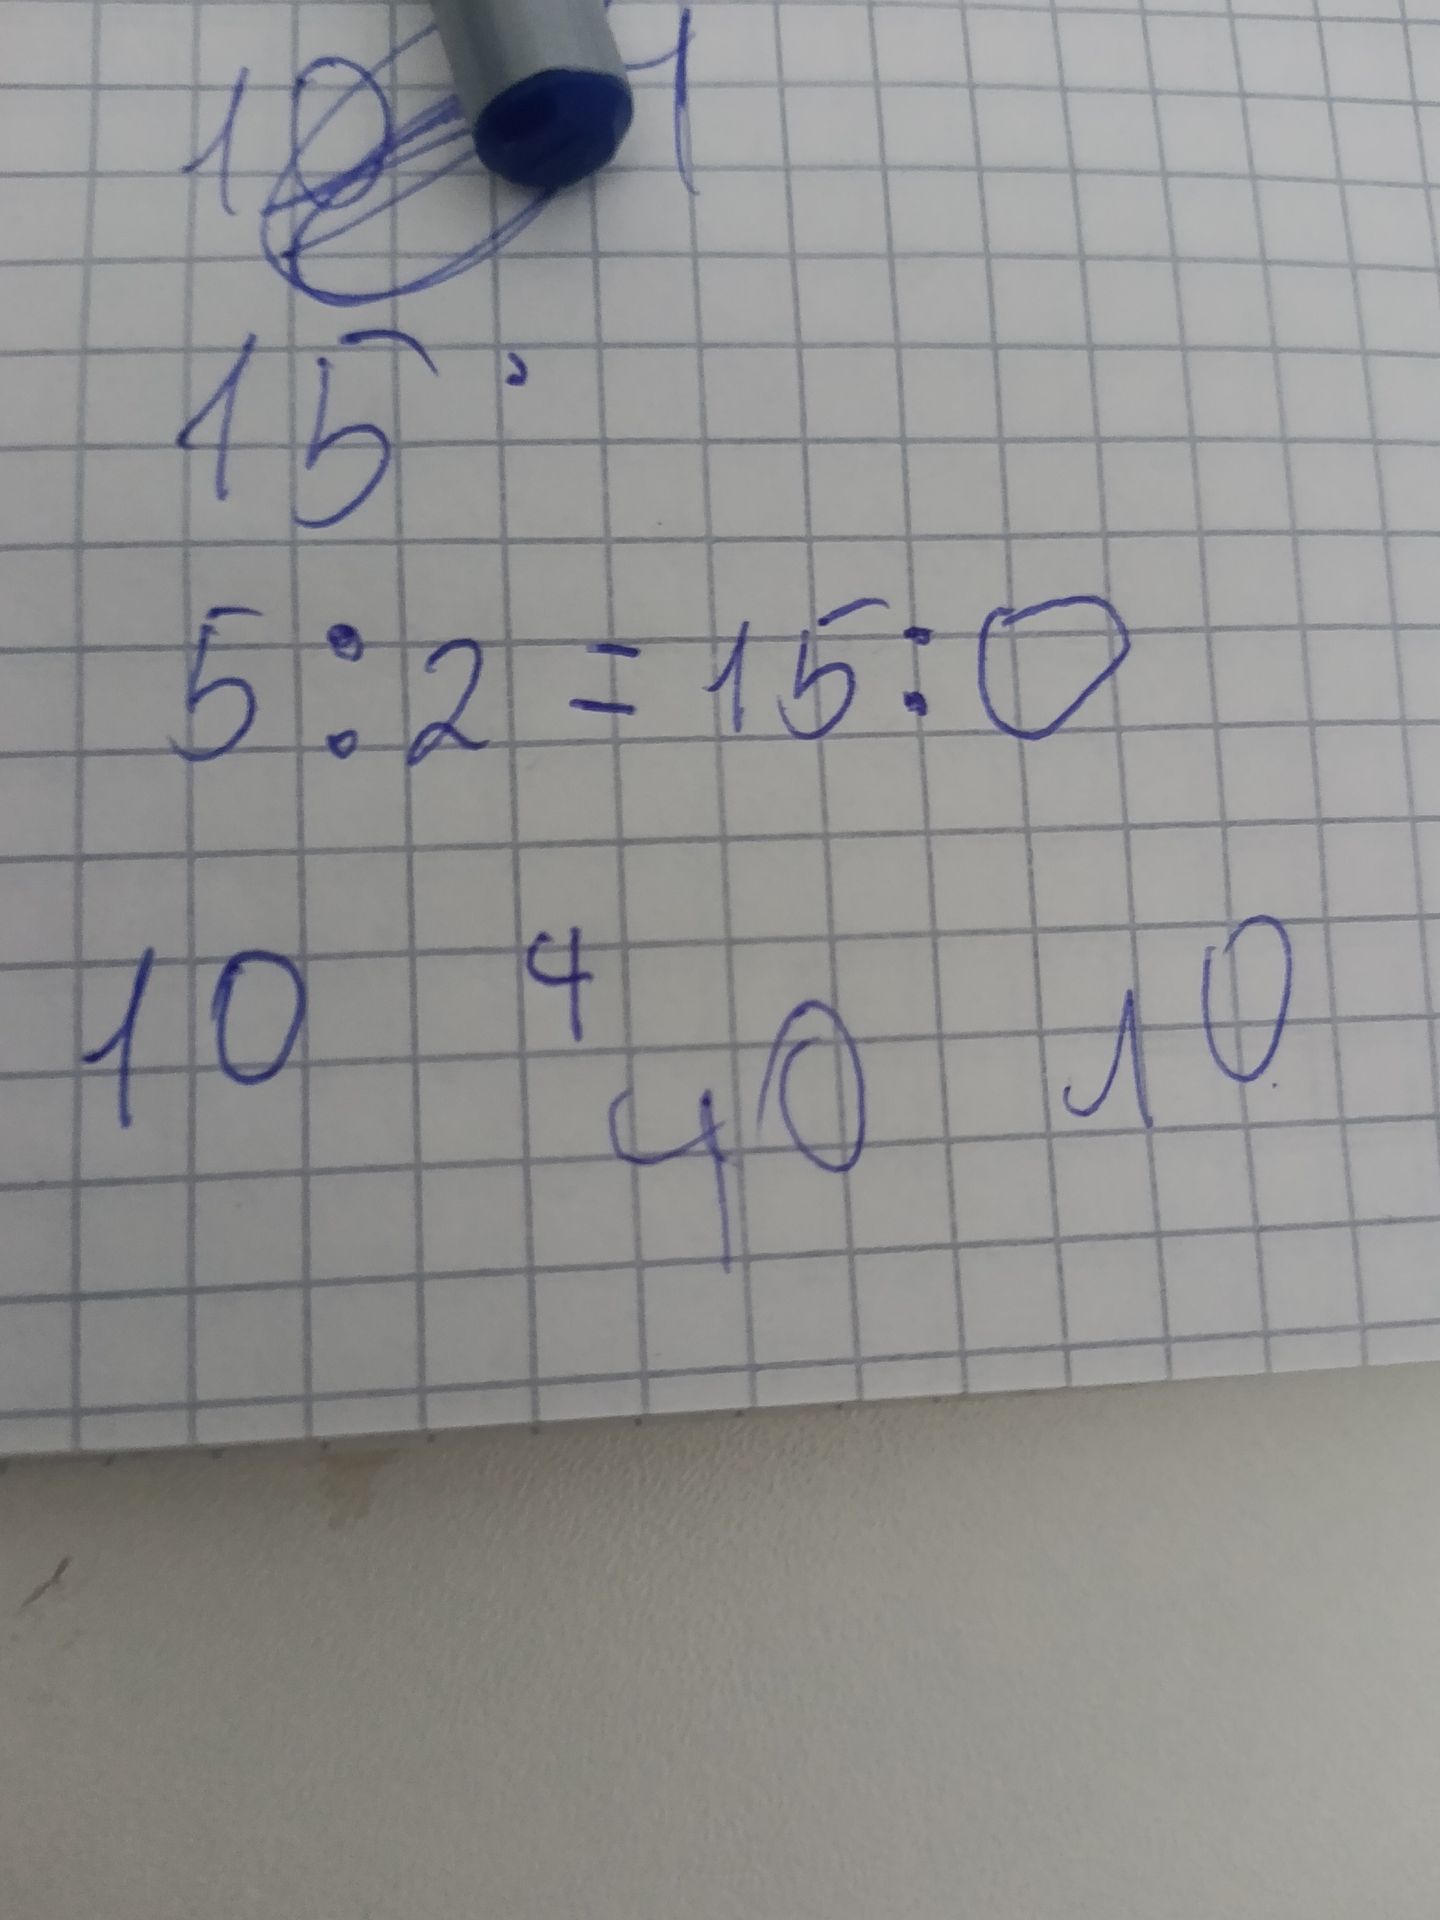 10 1
15
5 : 2 = 15 : 0
10 4 40 10